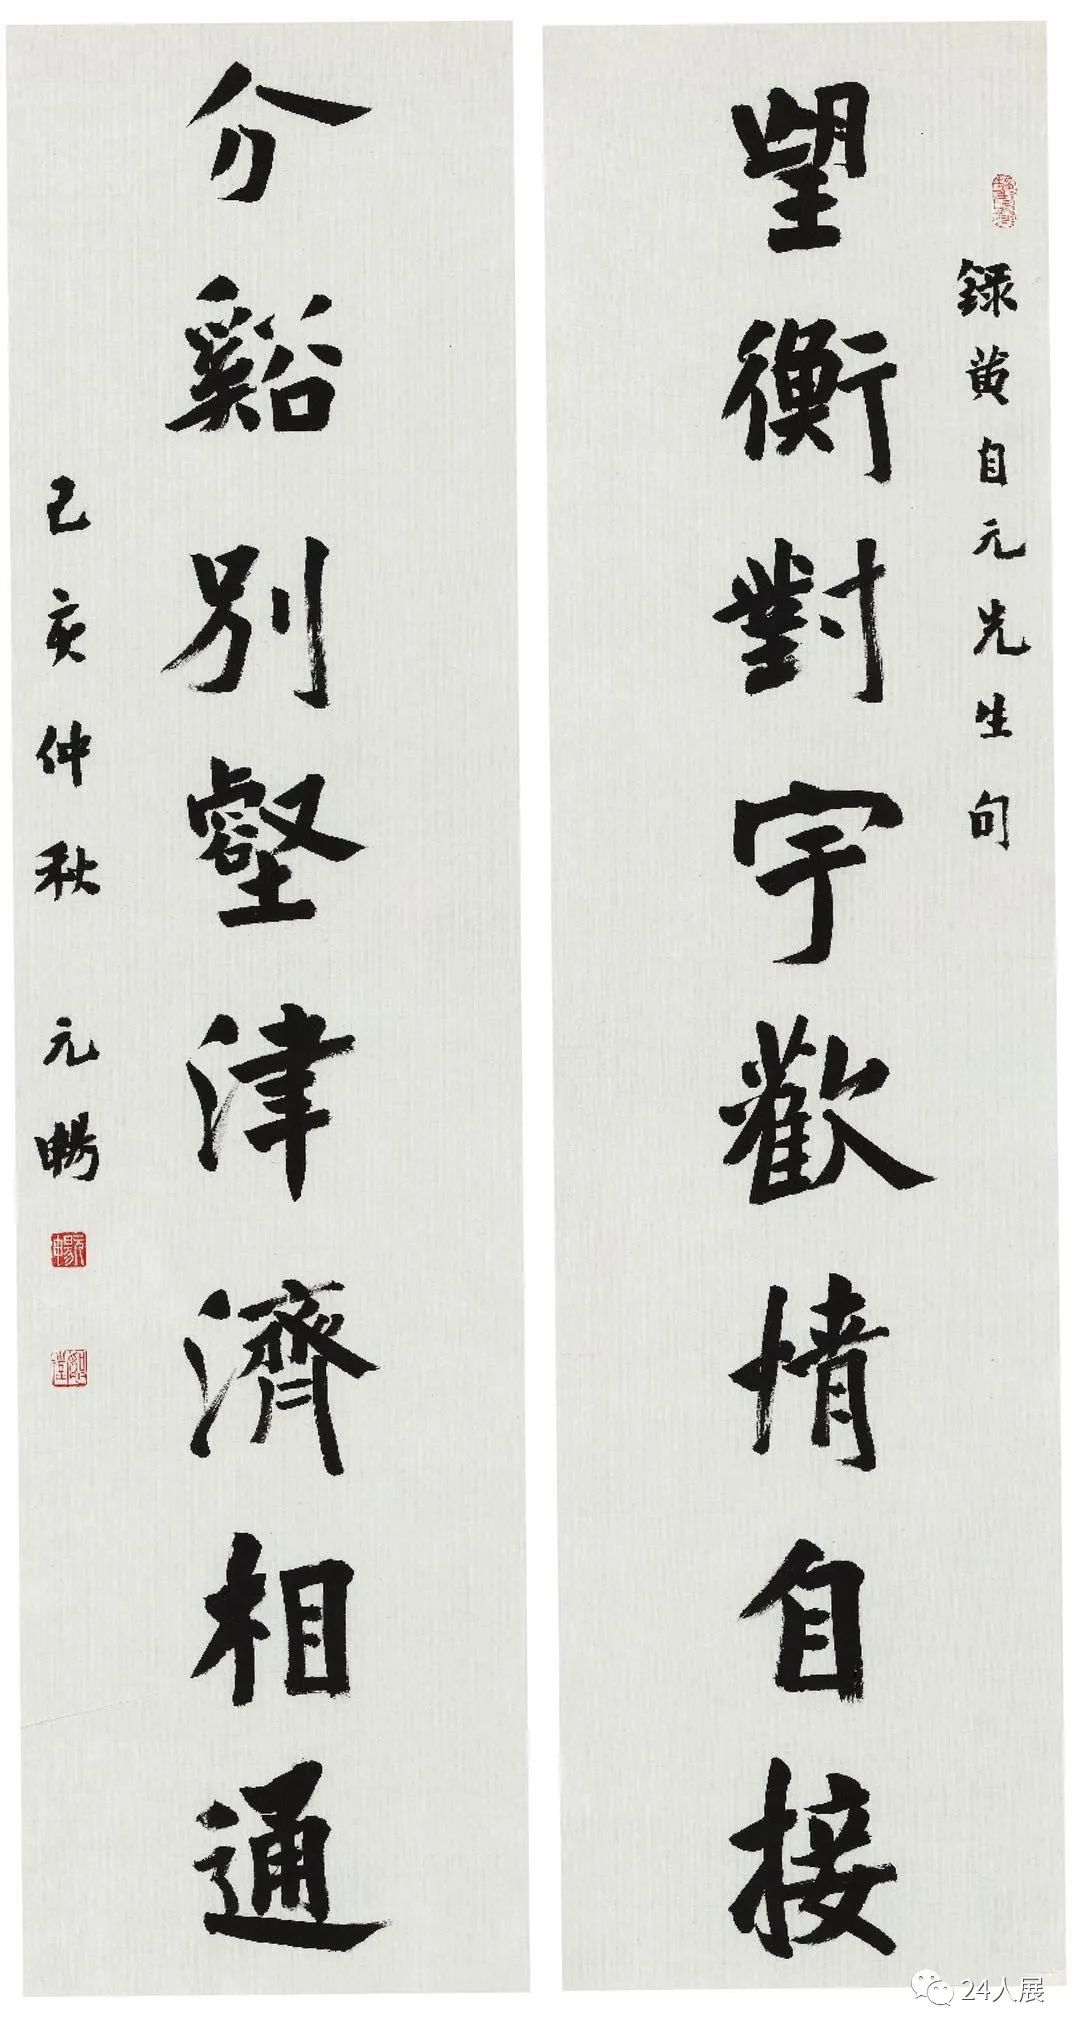 錄黃自元先生句
望衡對宇歡情自接
分谿別壑津濟相通
己亥仲秋 元暢
24人展